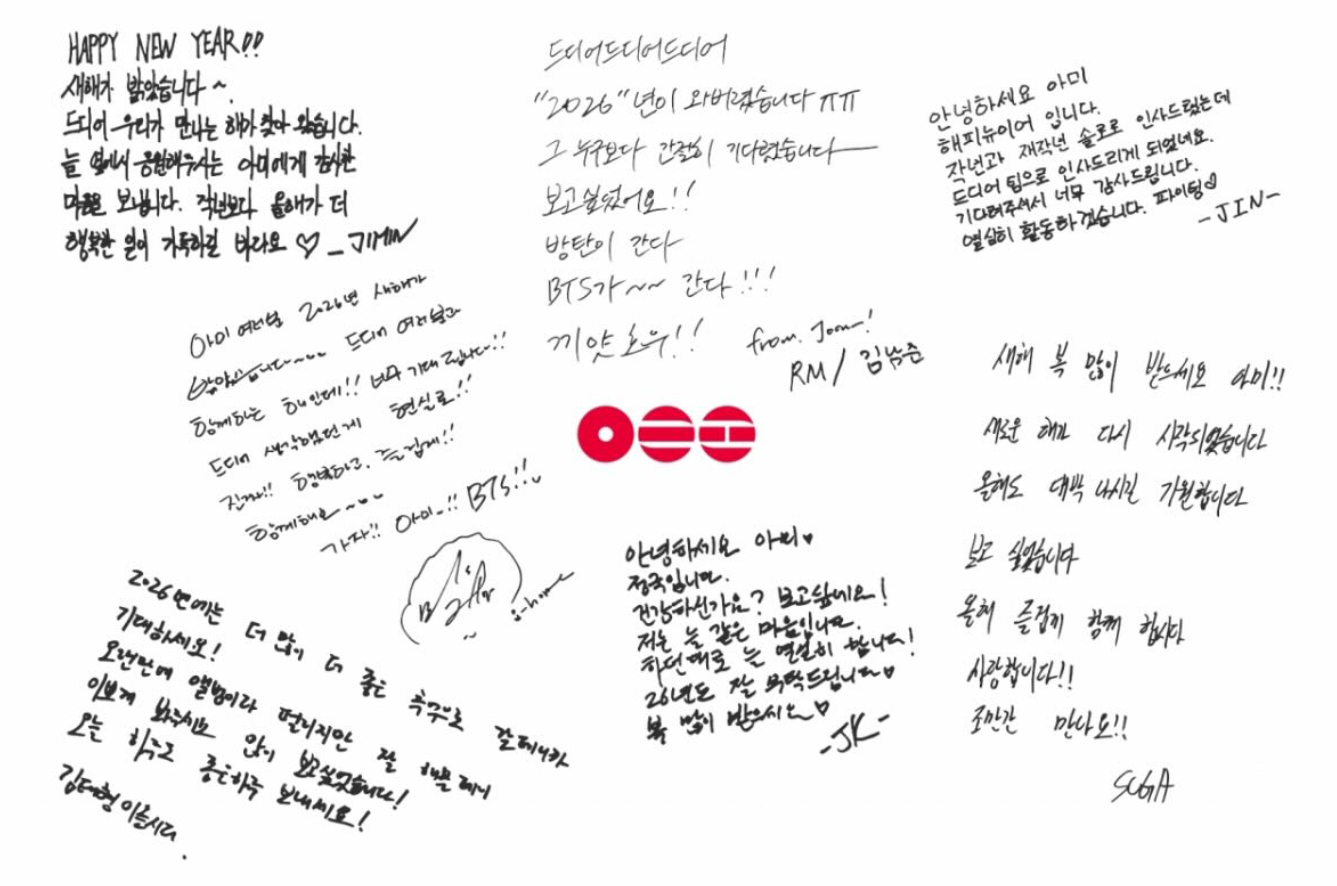 HAPPY NEW YEAR!!
새해가 밝았습니다 ~.
드디어 우리가 만나는 해가 찾아 왔습니다.
늘 옆에서 응원해주시는 아미에게 감사한
마음을 보냅니다. 작년보다 올해가 더
행복한 일이 가득하길 바라요 ♡ - JIMIN
드디어드디어드디어
"2026"년이 와버렸습니다 ㅠㅠ
그 누구보다 간절히 기다렸습니다—
보고싶었어요!!
방탄이 간다
BTS가~~ 간다!!!
끼얏호우!!
from. Joon!
RM / 김남준
안녕하세요 아미
해피뉴이어 입니다.
작년과 재작년 솔로로 인사드렸는데
드디어 팀으로 인사드리게 되었네요.
기다려주셔서 너무 감사드립니다.
열심히 활동하겠습니다. 파이팅♡
-JIN-
아미 여러분 2026년 새해가
밝았습니다~~ 드디어 여러분과
함께하는 해인데!! 너무 기대됩니다!!
드디어 생각했던게 현실로!!
진짜!! 행복하고, 즐겁게!!
함께해요~~
가자!! 아미~!! BTS!!
j-hope
새해 복 많이 받으세요 아미!!
새로운 해가 다시 시작되었습니다
올해도 대박 나시길 기원합니다
보고 싶었습니다
올해 즐겁게 함께 합시다
사랑합니다!!
조만간 만나요!!
SUGA
안녕하세요 아미♥
정국입니다.
건강하신가요? 보고싶네요!
저는 늘 같은 마음입니다.
하던대로 늘 열심히 합니다!
26년도 잘 부탁드립니다♥
복 많이 받으시오♡
-JK-
2026년에는 더 많이 더 좋은 추억으로 갈테니까
기대하세요!
오랜만에 앨범이라 떨리지만 잘 해볼테니
이쁘게 봐주시고 많이 보고싶었습니다!
오늘 하루도 좋은하루 보내세요!
김태형 이올시다.